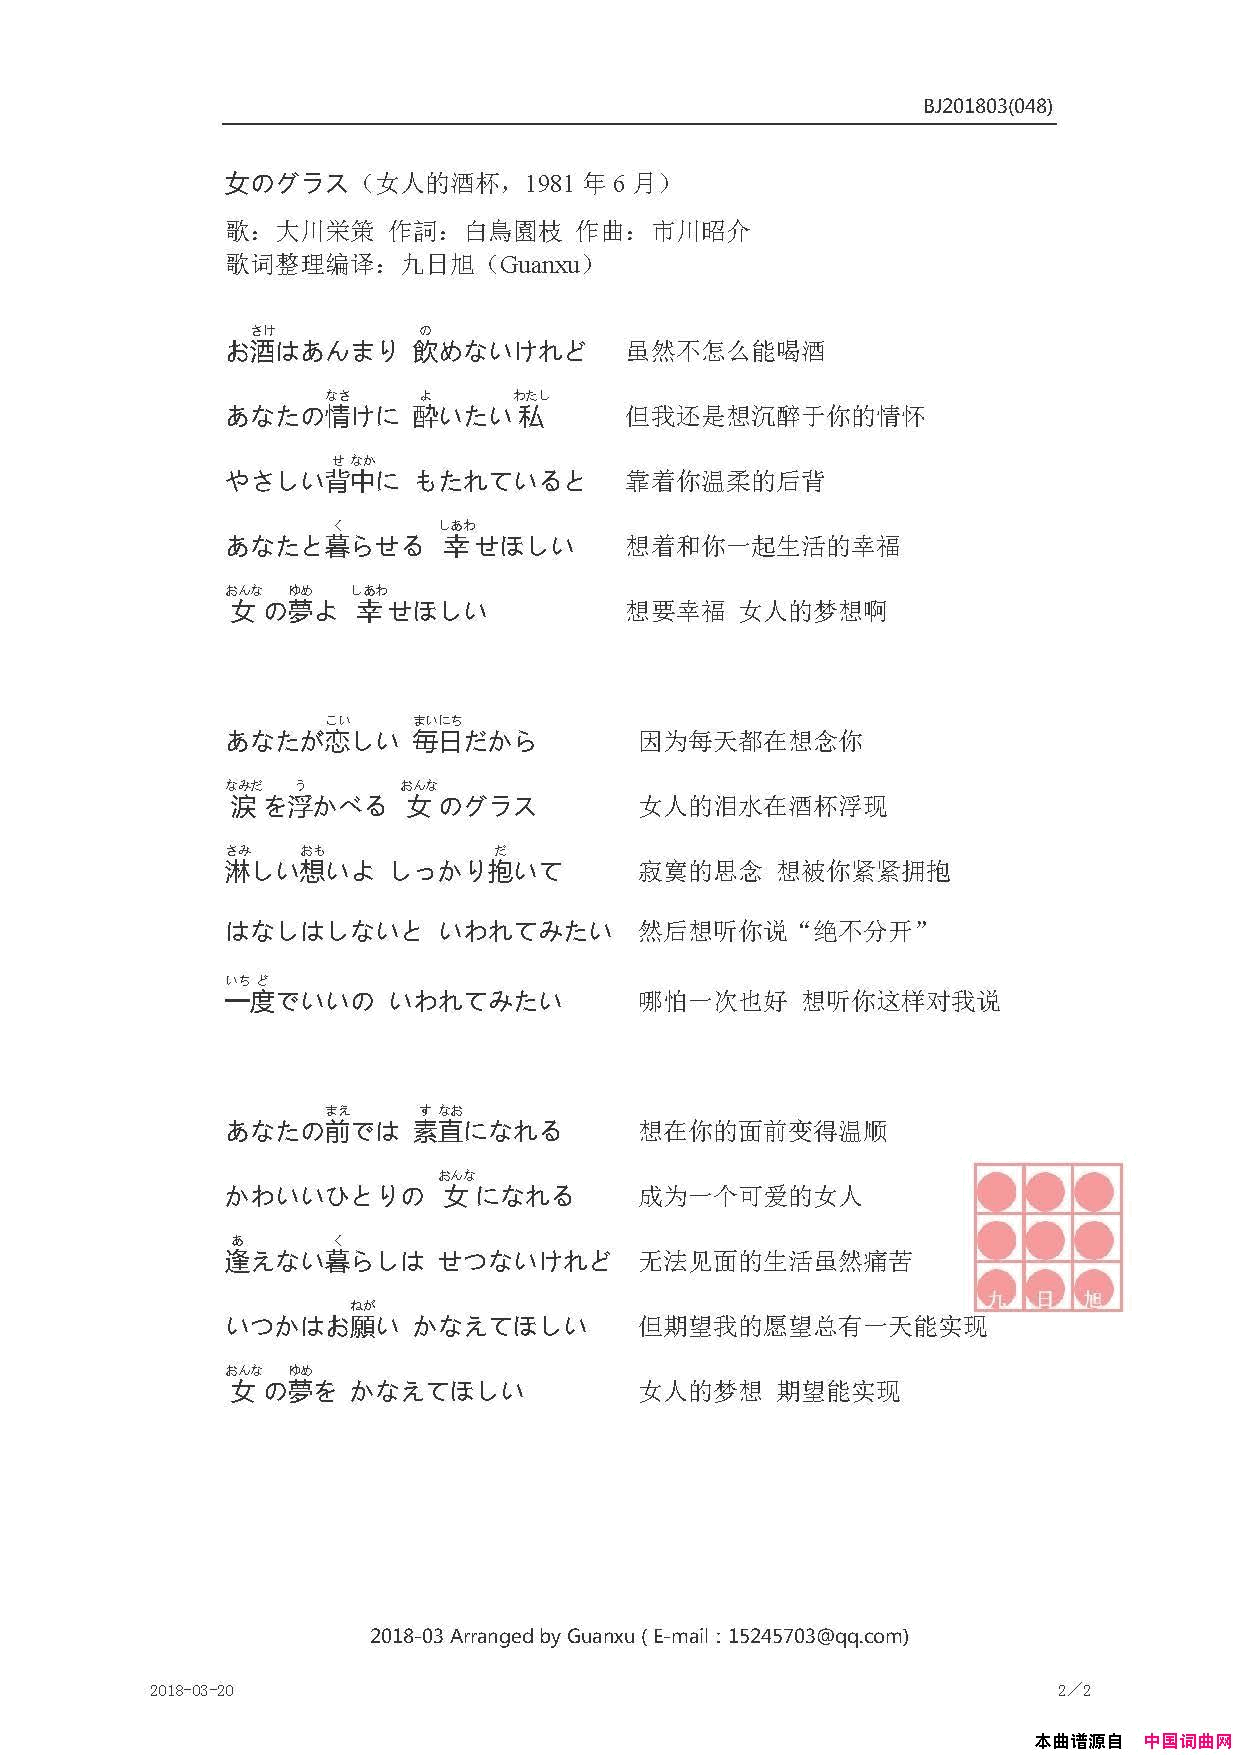 BJ201803(048)
女のグラス（女人的酒杯，1981 年 6 月）
歌：大川栄策 作詞：白鳥園枝 作曲：市川昭介
歌词整理编译：九日旭（Guanxu）
さけ の
お酒はあんまり 飲めないけれど 虽然不怎么能喝酒
なさ よ わたし
あなたの情けに 酔いたい私 但我还是想沉醉于你的情怀
せ なか
やさしい背中に もたれていると 靠着你温柔的后背
く しあわ
あなたと暮らせる 幸せほしい 想着和你一起生活的幸福
おんな ゆめ しあわ
女の夢よ 幸せほしい 想要幸福 女人的梦想啊
こい まいにち
あなたが恋しい 毎日だから 因为每天都在想念你
なみだ う おんな
涙を浮かべる 女のグラス 女人的泪水在酒杯浮现
さみ おも だ
淋しい想いよ しっかり抱いて 寂寞的思念 想被你紧紧拥抱
はなしはしないと いわれてみたい 然后想听你说“绝不分开”
いち ど
一度でいいの いわれてみたい 哪怕一次也好 想听你这样对我说
まえ す なお
あなたの前では 素直になれる 想在你的面前变得温顺
おんな
かわいいひとりの 女になれる 成为一个可爱的女人
あ く
逢えない暮らしは せつないけれど 无法见面的生活虽然痛苦
九 日 旭
ねが
いつかはお願い かなえてほしい 但期望我的愿望总有一天能实现
おんな ゆめ
女の夢を かなえてほしい 女人的梦想 期望能实现
2018-03 Arranged by Guanxu ( E-mail : 15245703@qq.com)
2018-03-20 2／2
本曲谱源自 中国词曲网